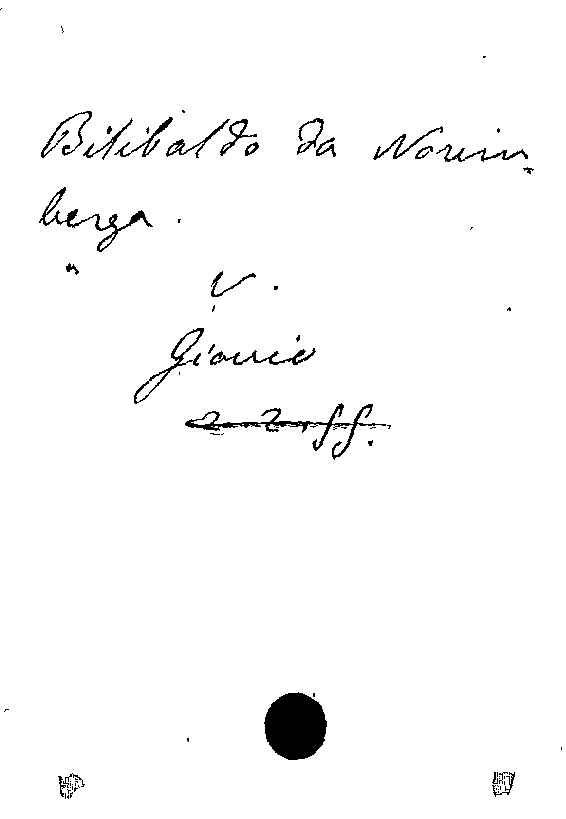 Bilibaldo da Norim-
berga.
V.
Giovio